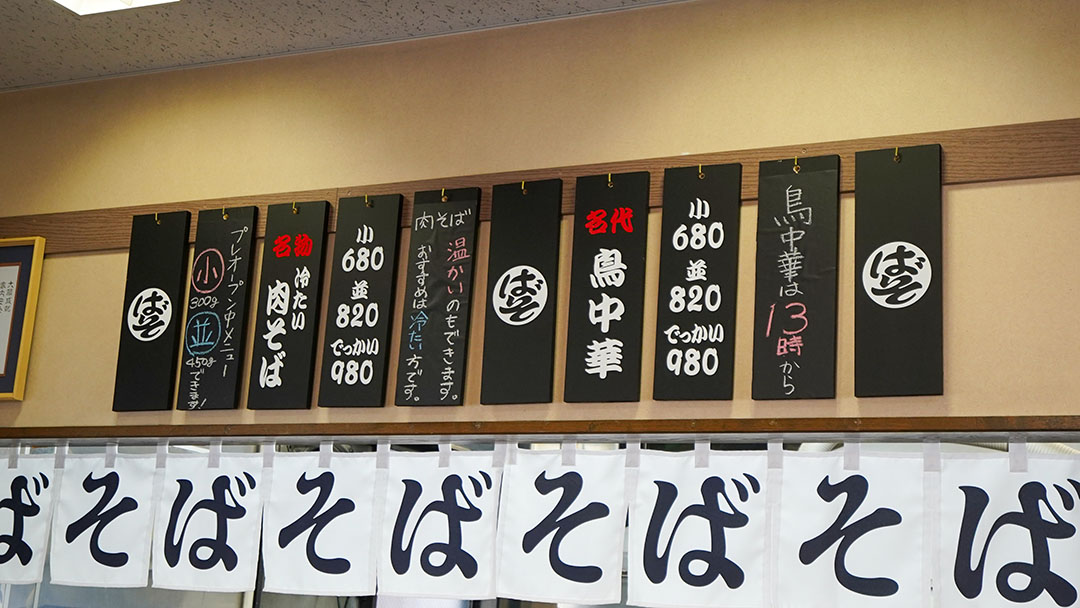 ばそ
プレオープン中メニュー
小
300g
並
450g
できます!
名物
冷たい
肉そば
小
680
並
820
でっかい
980
肉そば
温かいのもできます。
おすすめは冷たい方です。
ばそ
名代
鳥中華
小
680
並
820
でっかい
980
鳥中華は
13時から
ばそ
ば
そ
ば
そ
ば
そ
ば
そ
ば